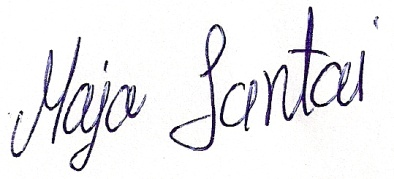 Maja Santai